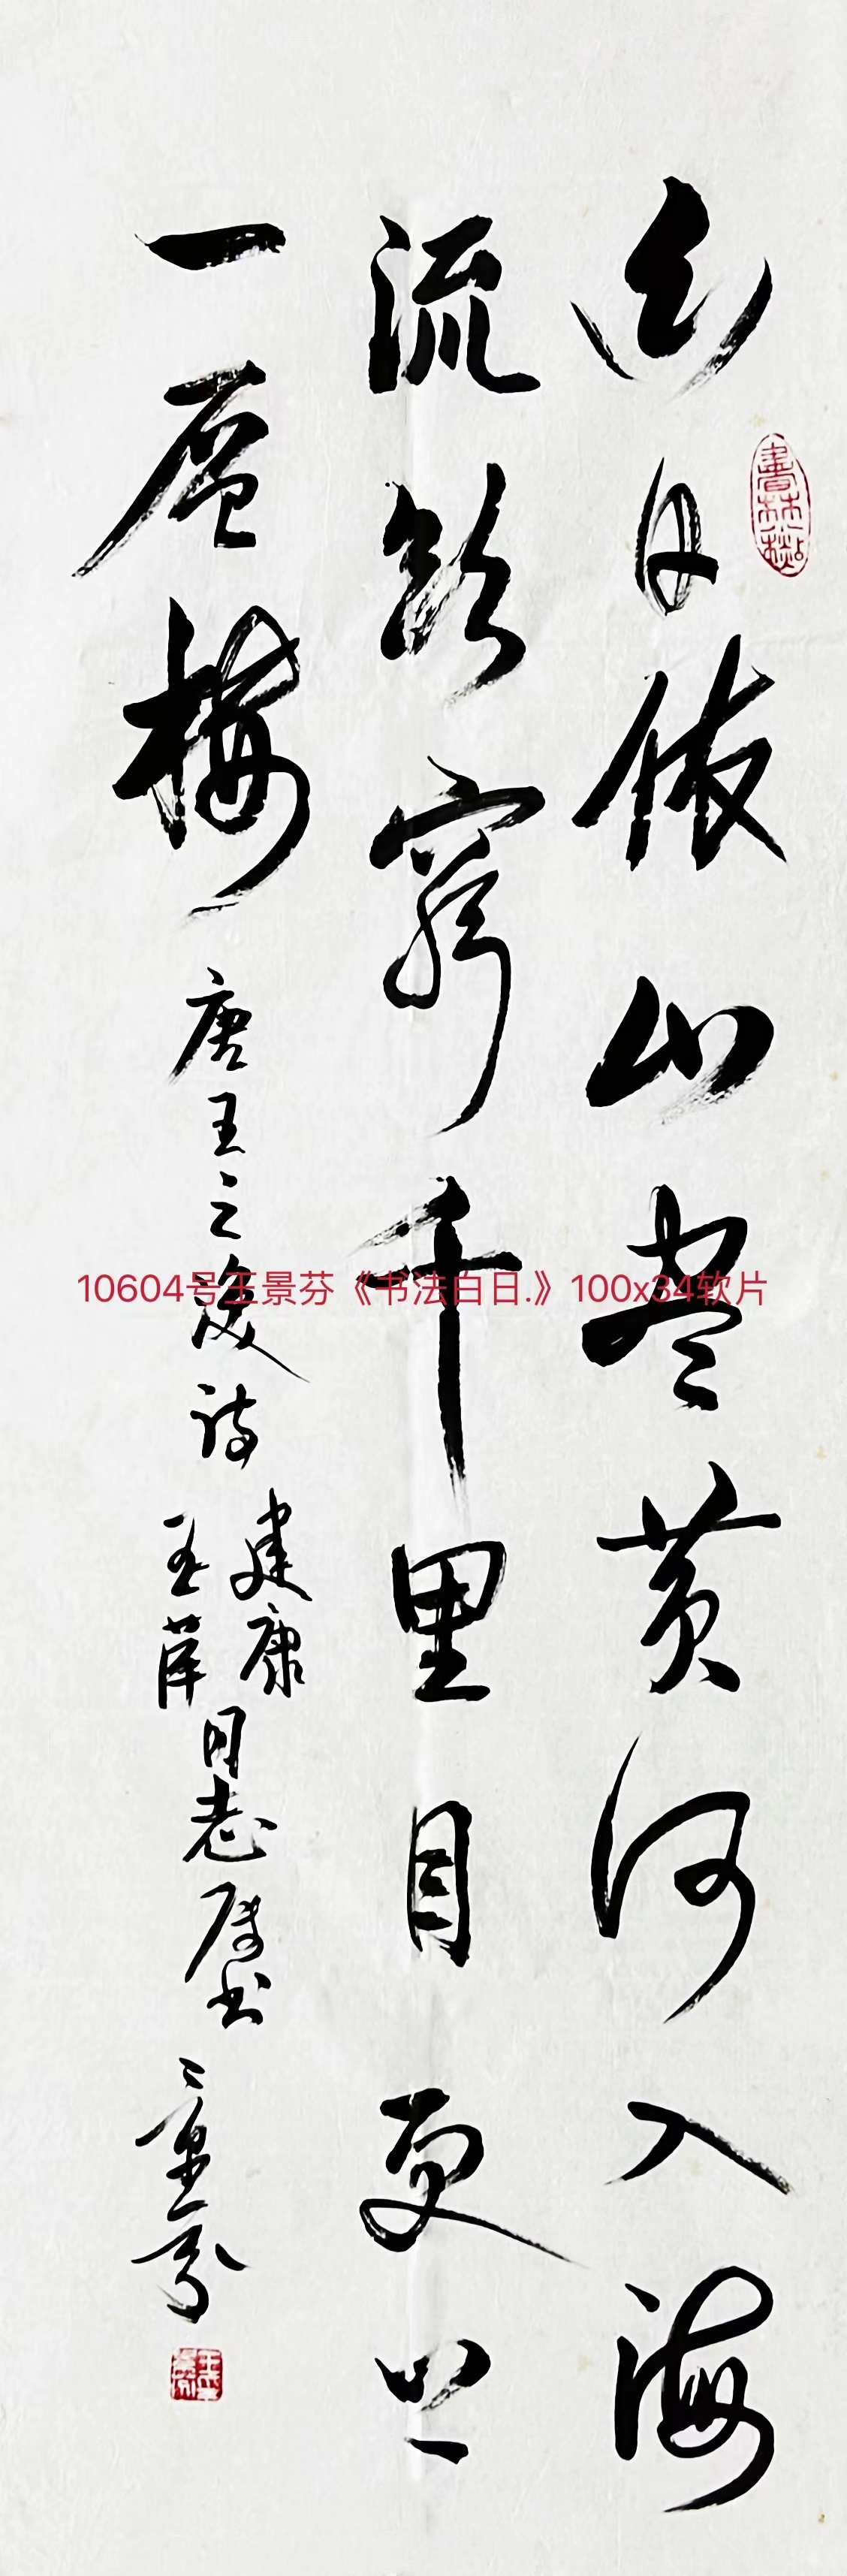 白日依山尽黄河入海
流欲穷千里目更上
一层楼
唐王之涣诗
建康
同志属书
景芬
10604号王景芬《书法白日.》100x34软片